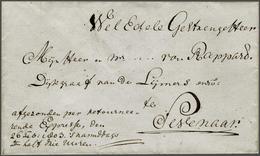 Wel Edele Gestrenge Heer
Mijn Heer M. van Rappard
Dijkgraaf van de Lijmers
te
Sevenaar
afgezonden per retourneerende
Expresse, den
26 1803. 's namiddags
half vier uuren.